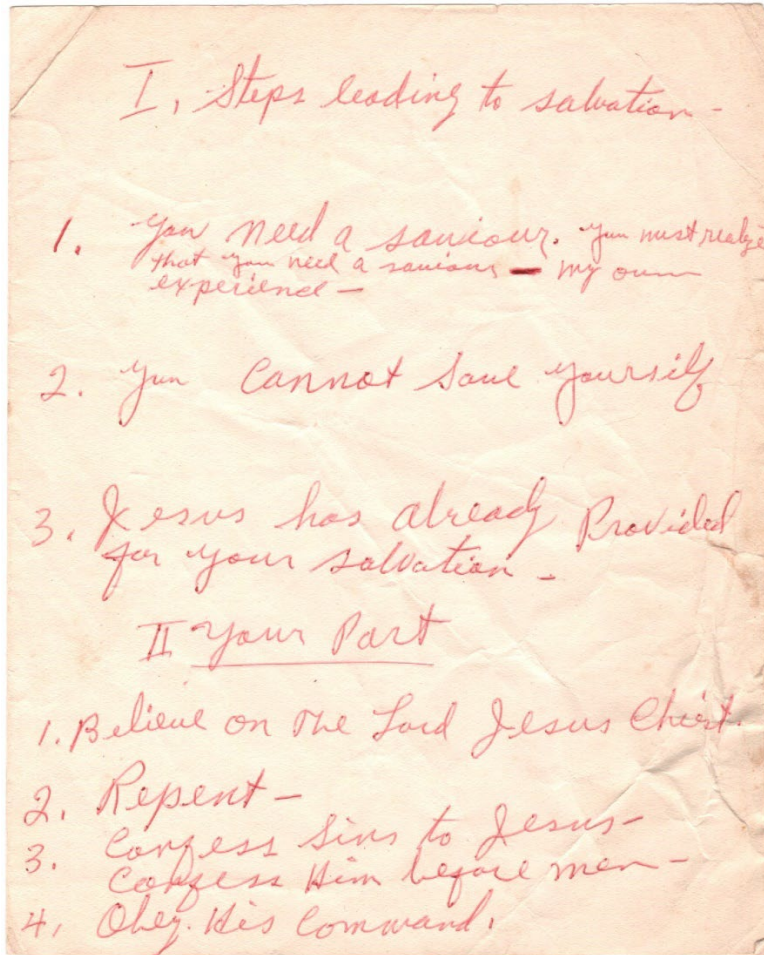 I, Steps leading to salvation -
1. You need a saviour. You must realize
that you need a saviour - my own
experience -
2. You cannot save yourself
3. Jesus has already Provided
for your salvation -
II Your Part
1. Believe on the Lord Jesus Christ.
2. Repent -
3. Confess Sins to Jesus -
Confess Him before men -
4, Obey. His Command.